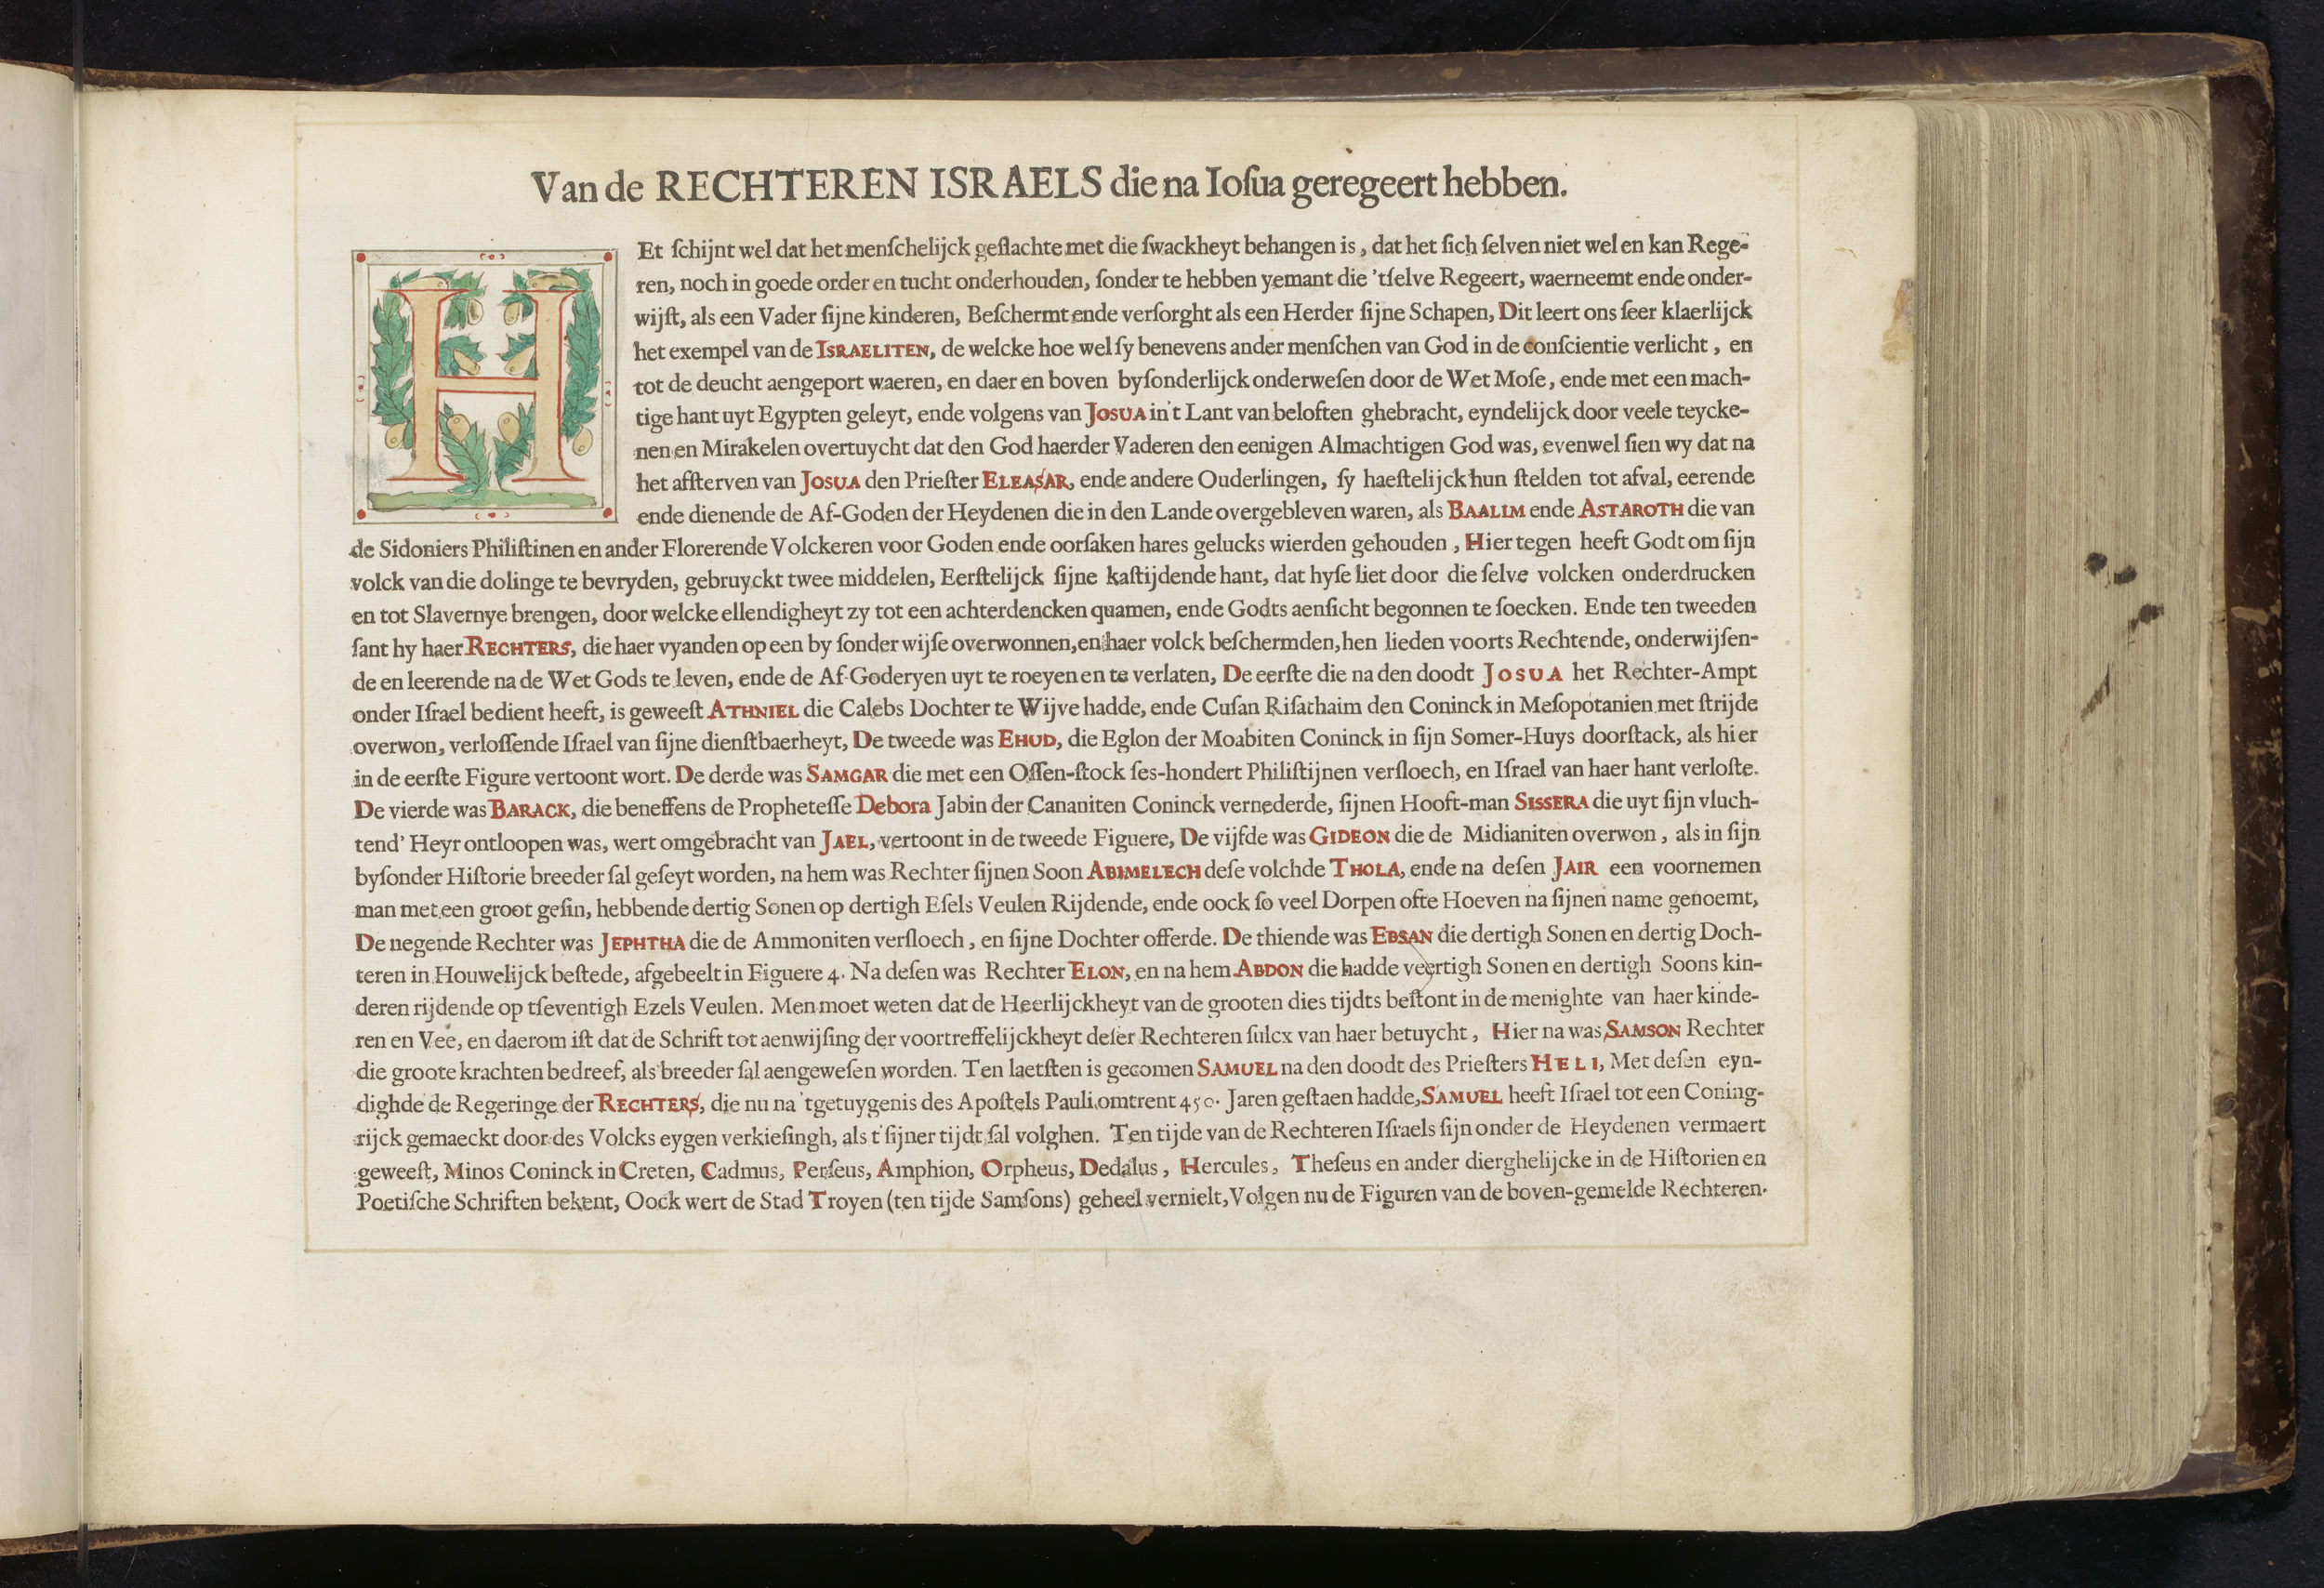 Van de RECHTEREN ISRAELS die na Ioſua geregeert hebben.
HEt ſchijnt wel dat het menſchelijck geſlachte met die ſwackheyt behangen is, dat het ſich ſelven niet wel en kan Rege-
ren, noch in goede order en tucht onderhouden, ſonder te hebben yemant die 'tſelve Regeert, waerneemt ende onder-
wijſt, als een Vader ſijne kinderen, Beſchermt ende verſorght als een Herder ſijne Schapen, Dit leert ons ſeer klaerlijck
het exempel van de ISRAELITEN, de welcke hoe wel ſy benevens ander menſchen van God in de conſcientie verlicht, en
tot de deucht aengeport waeren, en daer en boven byſonderlijck onderweſen door de Wet Moſe, ende met een mach-
tige hant uyt Egypten geleyt, ende volgens van JOSUA in't Lant van beloften ghebracht, eyndelijck door veele teycke-
nen en Mirakelen overtuycht dat den God haerder Vaderen den eenigen Almachtigen God was, evenwel ſien wy dat na
het afſterven van JOSUA den Prieſter ELEASAR, ende andere Ouderlingen, ſy haeſtelijck hun ſtelden tot afval, eerende
ende dienende de Af-Goden der Heydenen die in den Lande overgebleven waren, als BAALIM ende ASTAROTH die van
de Sidoniers Philiſtinen en ander Florerende Volckeren voor Goden ende oorſaken hares gelucks wierden gehouden, Hier tegen heeft Godt om ſijn
volck van die dolinge te bevryden, gebruyckt twee middelen, Eerſtelijck ſijne kaſtijdende hant, dat hyſe liet door die ſelve volcken onderdrucken
en tot Slavernye brengen, door welcke ellendigheyt zy tot een achterdencken quamen, ende Godts aenſicht begonnen te ſoecken. Ende ten tweeden
ſant hy haer RECHTERS, die haer vyanden op een by ſonder wijſe overwonnen, en haer volck beſchermden, hen lieden voorts Rechtende, onderwijſen-
de en leerende na de Wet Gods te leven, ende de Af-Goderyen uyt te roeyen en te verlaten, De eerſte die na den doodt JOSUA het Rechter-Ampt
onder Iſrael bedient heeft, is geweeſt ATHNIEL die Calebs Dochter te Wijve hadde, ende Cuſan Riſathaim den Coninck in Meſopotanien met ſtrijde
overwon, verloſſende Iſrael van ſijne dienſtbaerheyt, De tweede was EHUD, die Eglon der Moabiten Coninck in ſijn Somer-Huys doorſtack, als hier
in de eerſte Figure vertoont wort. De derde was SAMGAR die met een Oſſen-ſtock ſes-hondert Philiſtijnen verſloech, en Iſrael van haer hant verloſte.
De vierde was BARACK, die beneffens de Propheteſſe Debora Jabin der Cananiten Coninck vernederde, ſijnen Hooft-man SISSERA die uyt ſijn vluch-
tend' Heyr ontloopen was, wert omgebracht van JAEL, vertoont in de tweede Figuere, De vijfde was GIDEON die de Midianiten overwon, als in ſijn
byſonder Hiſtorie breeder ſal geſeyt worden, na hem was Rechter ſijnen Soon ABIMELECH deſe volchde THOLA, ende na deſen JAIR een voornemen
man met een groot geſin, hebbende dertig Sonen op dertigh Eſels Veulen Rijdende, ende oock ſo veel Dorpen ofte Hoeven na ſijnen name genoemt,
De negende Rechter was JEPHTHA die de Ammoniten verſloech, en ſijne Dochter offerde. De thiende was EBSAN die dertigh Sonen en dertig Doch-
teren in Houwelijck beſtede, afgebeelt in Figuere 4. Na deſen was Rechter ELON, en na hem ABDON die hadde veertigh Sonen en dertigh Soons kin-
deren rijdende op tſeventigh Ezels Veulen. Men moet weten dat de Heerlijckheyt van de grooten dies tijdts beſtont in de menighte van haer kinde-
ren en Vee, en daerom iſt dat de Schrift tot aenwijſing der voortreffelijckheyt deſer Rechteren ſulcx van haer betuycht, Hier na was SAMSON Rechter
die groote krachten bedreef, als breeder ſal aengeweſen worden. Ten laetſten is gecomen SAMUEL na den doodt des Prieſters HELI, Met deſen eyn-
dighde de Regeringe der RECHTERS, die nu na 'tgetuygenis des Apoſtels Pauli omtrent 450. Jaren geſtaen hadde, SAMUEL heeft Iſrael tot een Coning-
rijck gemaeckt door des Volcks eygen verkieſingh, als t'ſijner tijdt ſal volghen. Ten tijde van de Rechteren Iſraels ſijn onder de Heydenen vermaert
geweeſt, Minos Coninck in Creten, Cadmus, Perſeus, Amphion, Orpheus, Dedalus, Hercules, Theſeus en ander dierghelijcke in de Hiſtorien en
Poetiſche Schriften bekent, Oock wert de Stad Troyen (ten tijde Samſons) geheel vernielt, Volgen nu de Figuren van de boven-gemelde Rechteren.